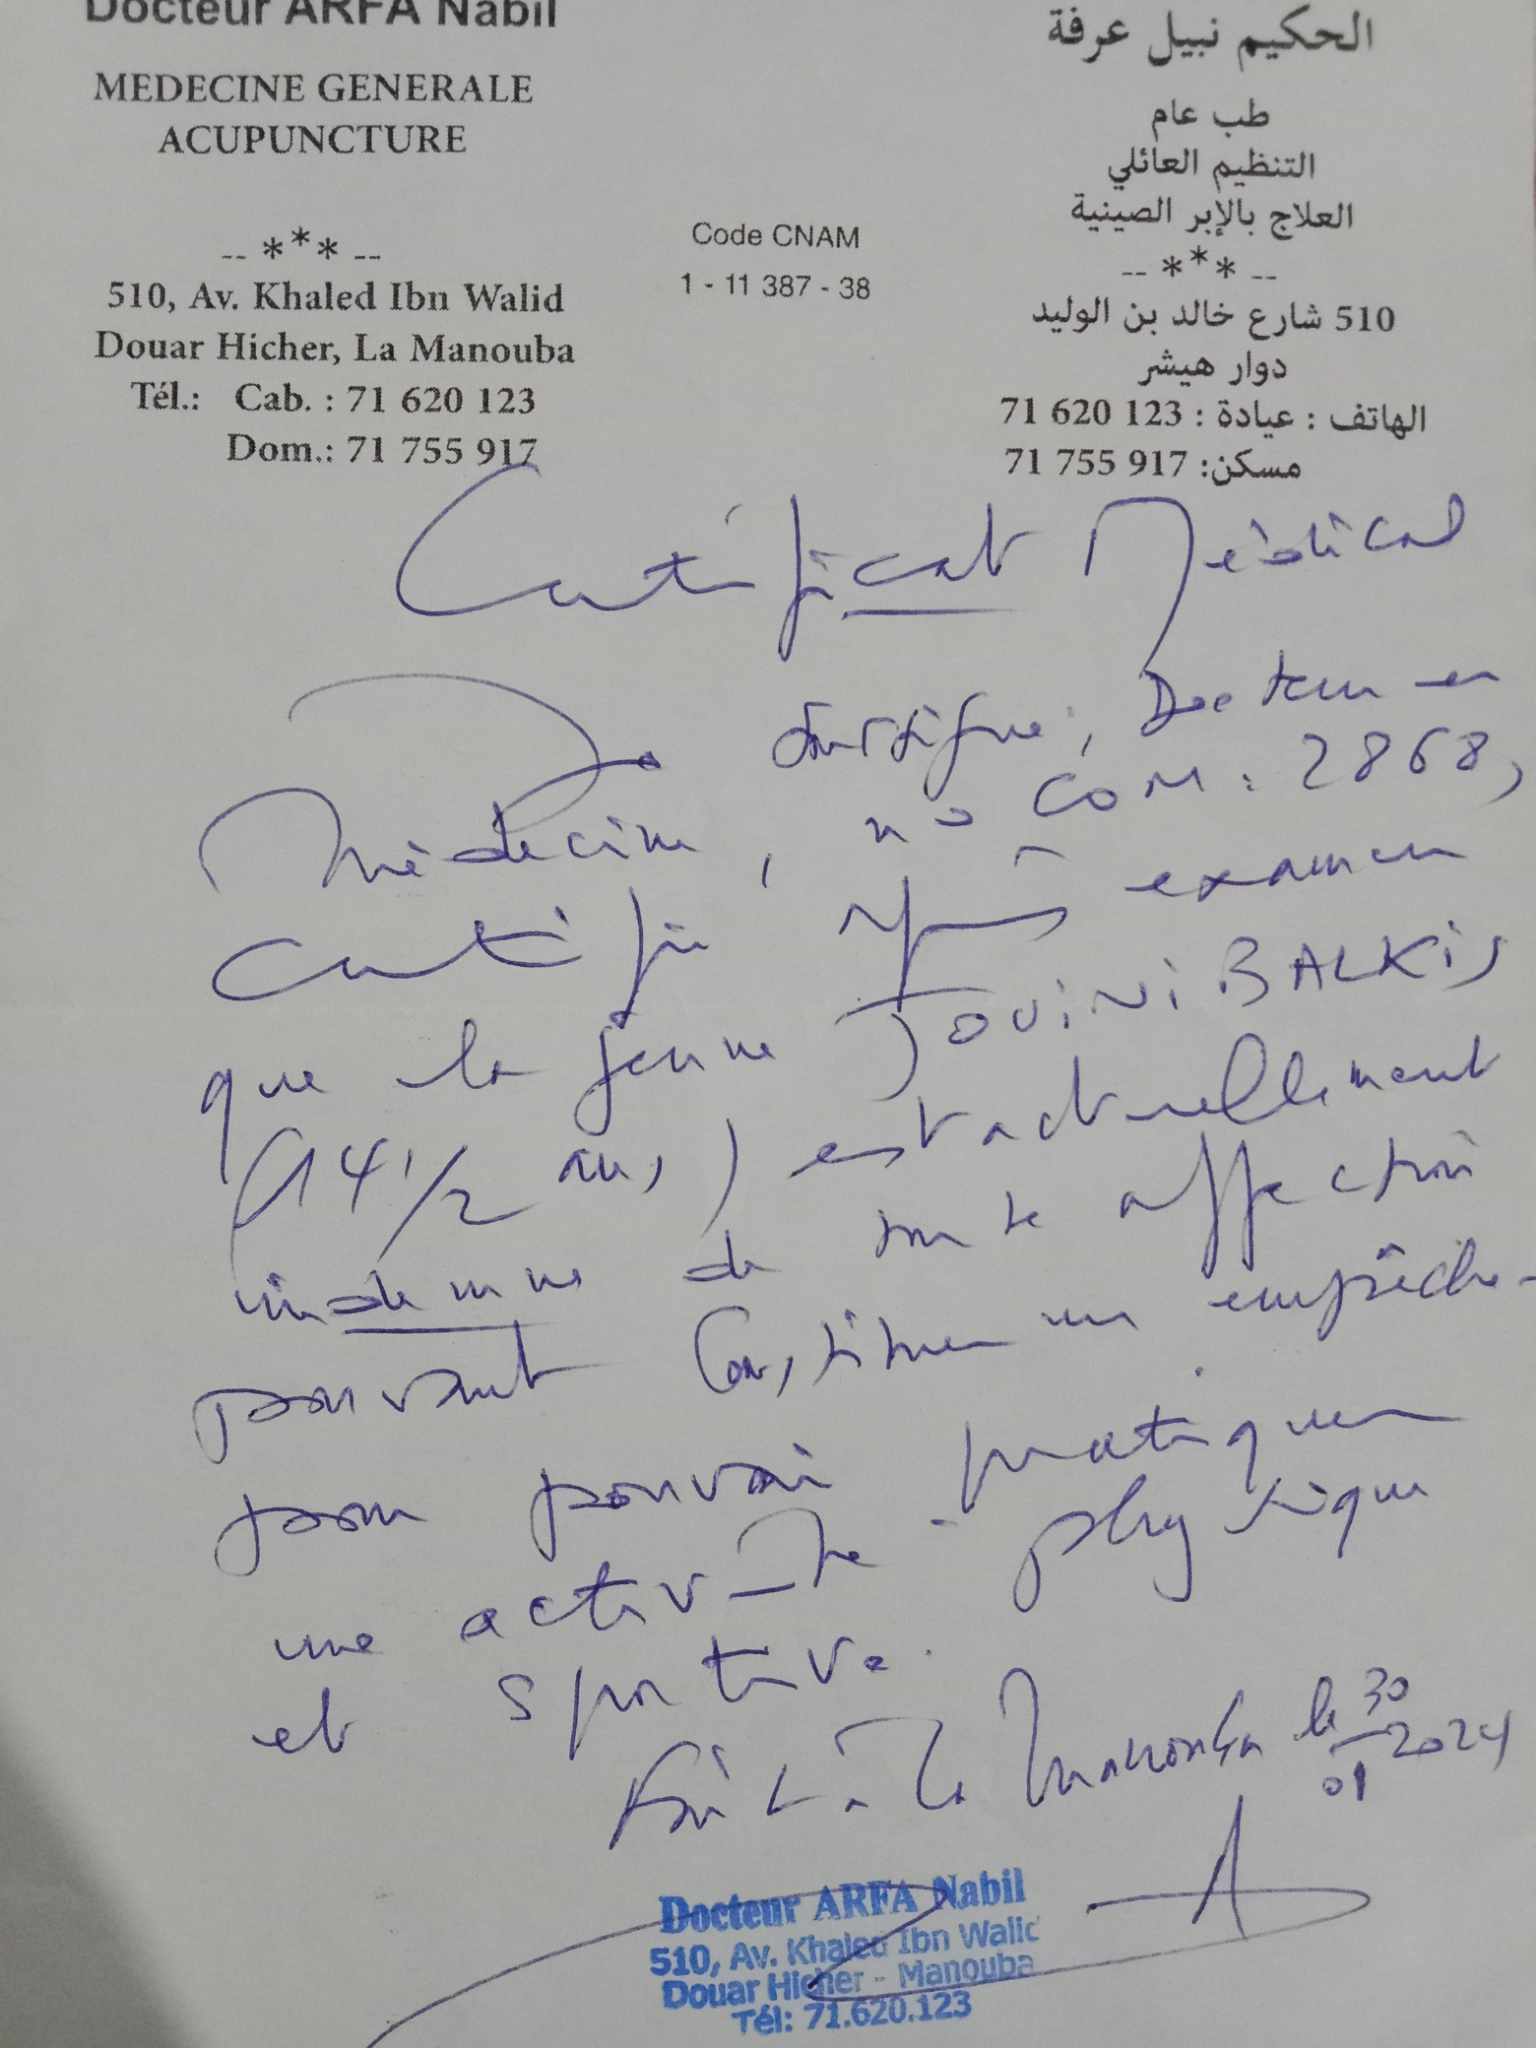 Docteur ARFA Nabil
MEDECINE GENERALE
ACUPUNCTURE
-- *** --
510, Av. Khaled Ibn Walid
Douar Hicher, La Manouba
Tél.: Cab. : 71 620 123
Dom.: 71 755 917
Code CNAM
1 - 11 387 - 38
الحكيم نبيل عرفة
طب عام
التنظيم العائلي
العلاج بالإبر الصينية
-- *** --
510 شارع خالد بن الوليد
دوار هيشر
الهاتف : عيادة : 71 620 123
مسكن: 71 755 917
Certificat Médical
Je soussigné, Docteur en
Médecine, no COM : 2868,
certifie après examen
que la jeune JOUINI BALKIS
(14 1/2 ans) est actuellement
indemne de toute affection
pouvant constituer un empêche-
pour pouvoir pratiquer
une activité physique
et sportive.
Fait à La Manouba le 30/01 2024
Docteur ARFA Nabil
510, Av. Khaled Ibn Walid
Douar Hicher - Manouba
Tél: 71.620.123